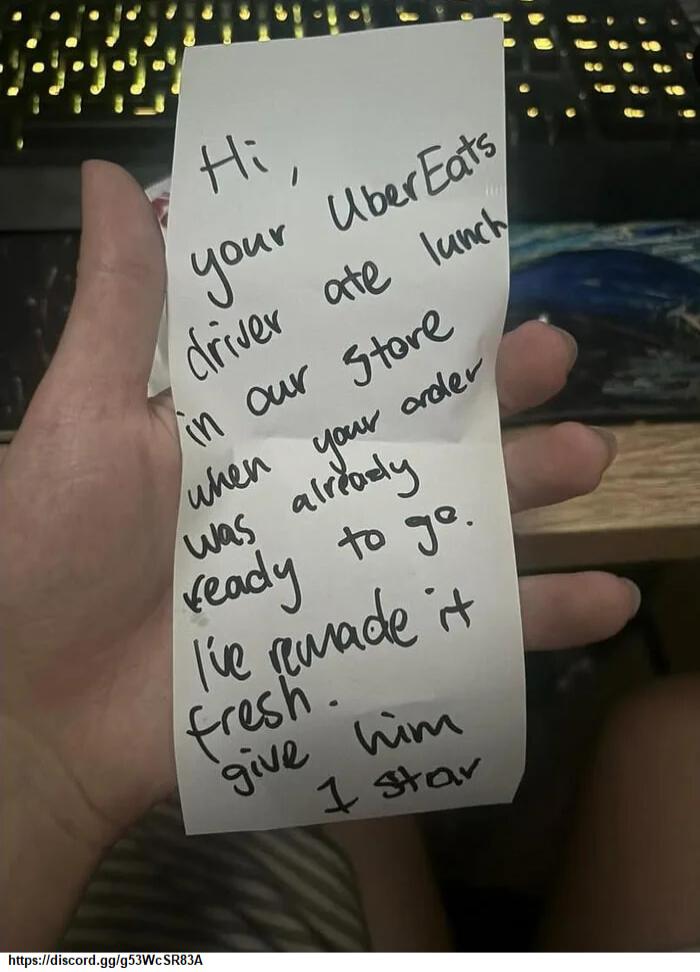 Hi,
your UberEats
driver ate lunch
in our store
when your order
was already
ready to go.
I've remade it
fresh.
give him
1 star
https://discord.gg/g53WcSR83A